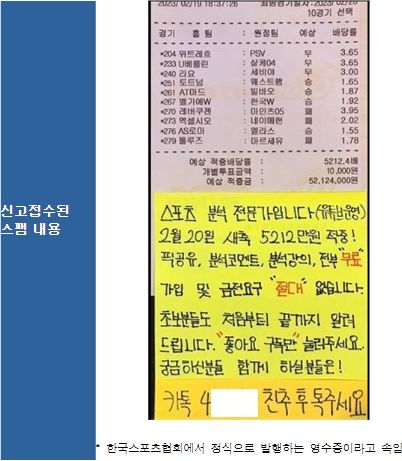 2023/02/19 18:37:26
10경기 선택
경기 홈 팀 : 원정팀 예상 배당률
*204 위트레흐 : PSV 무 3.65
*233 U베를린 : 살케04 무 3.65
*240 리요 : 세비야 무 3.00
*251 토트넘 : 웨스트햄 승 1.65
*261 AT마드 : 빌바오 승 1.87
*267 벨기에W : 한국W 승 1.92
*270 레버쿠젠 : 마인츠05 패 3.95
*273 엑셀시오 : 네이메헌 무 2.02
*276 AS로마 : 엘라스 승 1.55
*279 툴루즈 : 마르세유 패 1.78
예상 적중배당률 : 5212.4배
개별투표금액 : 10,000원
예상 적중금 : 52,124,000원
신고접수된
스팸 내용
스포츠 분석 전문가입니다
2월 20일 새축 5212만원 적중!
픽공유, 분석코멘트, 분석강의, 전부 "무료"
가입 및 금전요구 "절대" 없습니다.
초보분들도 처음부터 끝까지 알려
드립니다. "좋아요 구독만" 눌러주세요.
궁금하신분들 함께 하실분들은!
카톡 4 친추 후 톡주세요
* 한국스포츠협회에서 정식으로 발행하는 영수증이라고 속임